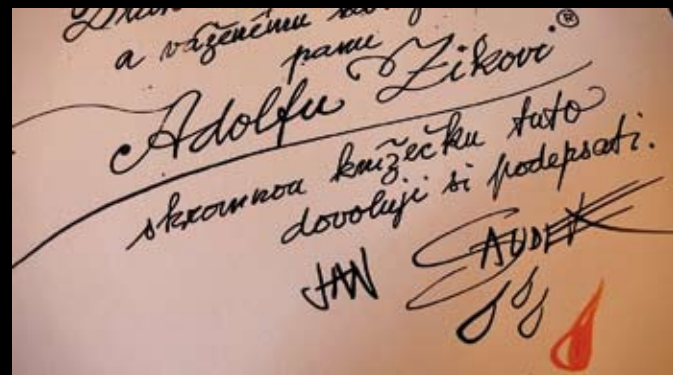 a váženému
panu
Adolfu Zikovi ®
skromnou knížečku tuto
dovoluji si podepsati.
JAN SAUDEK